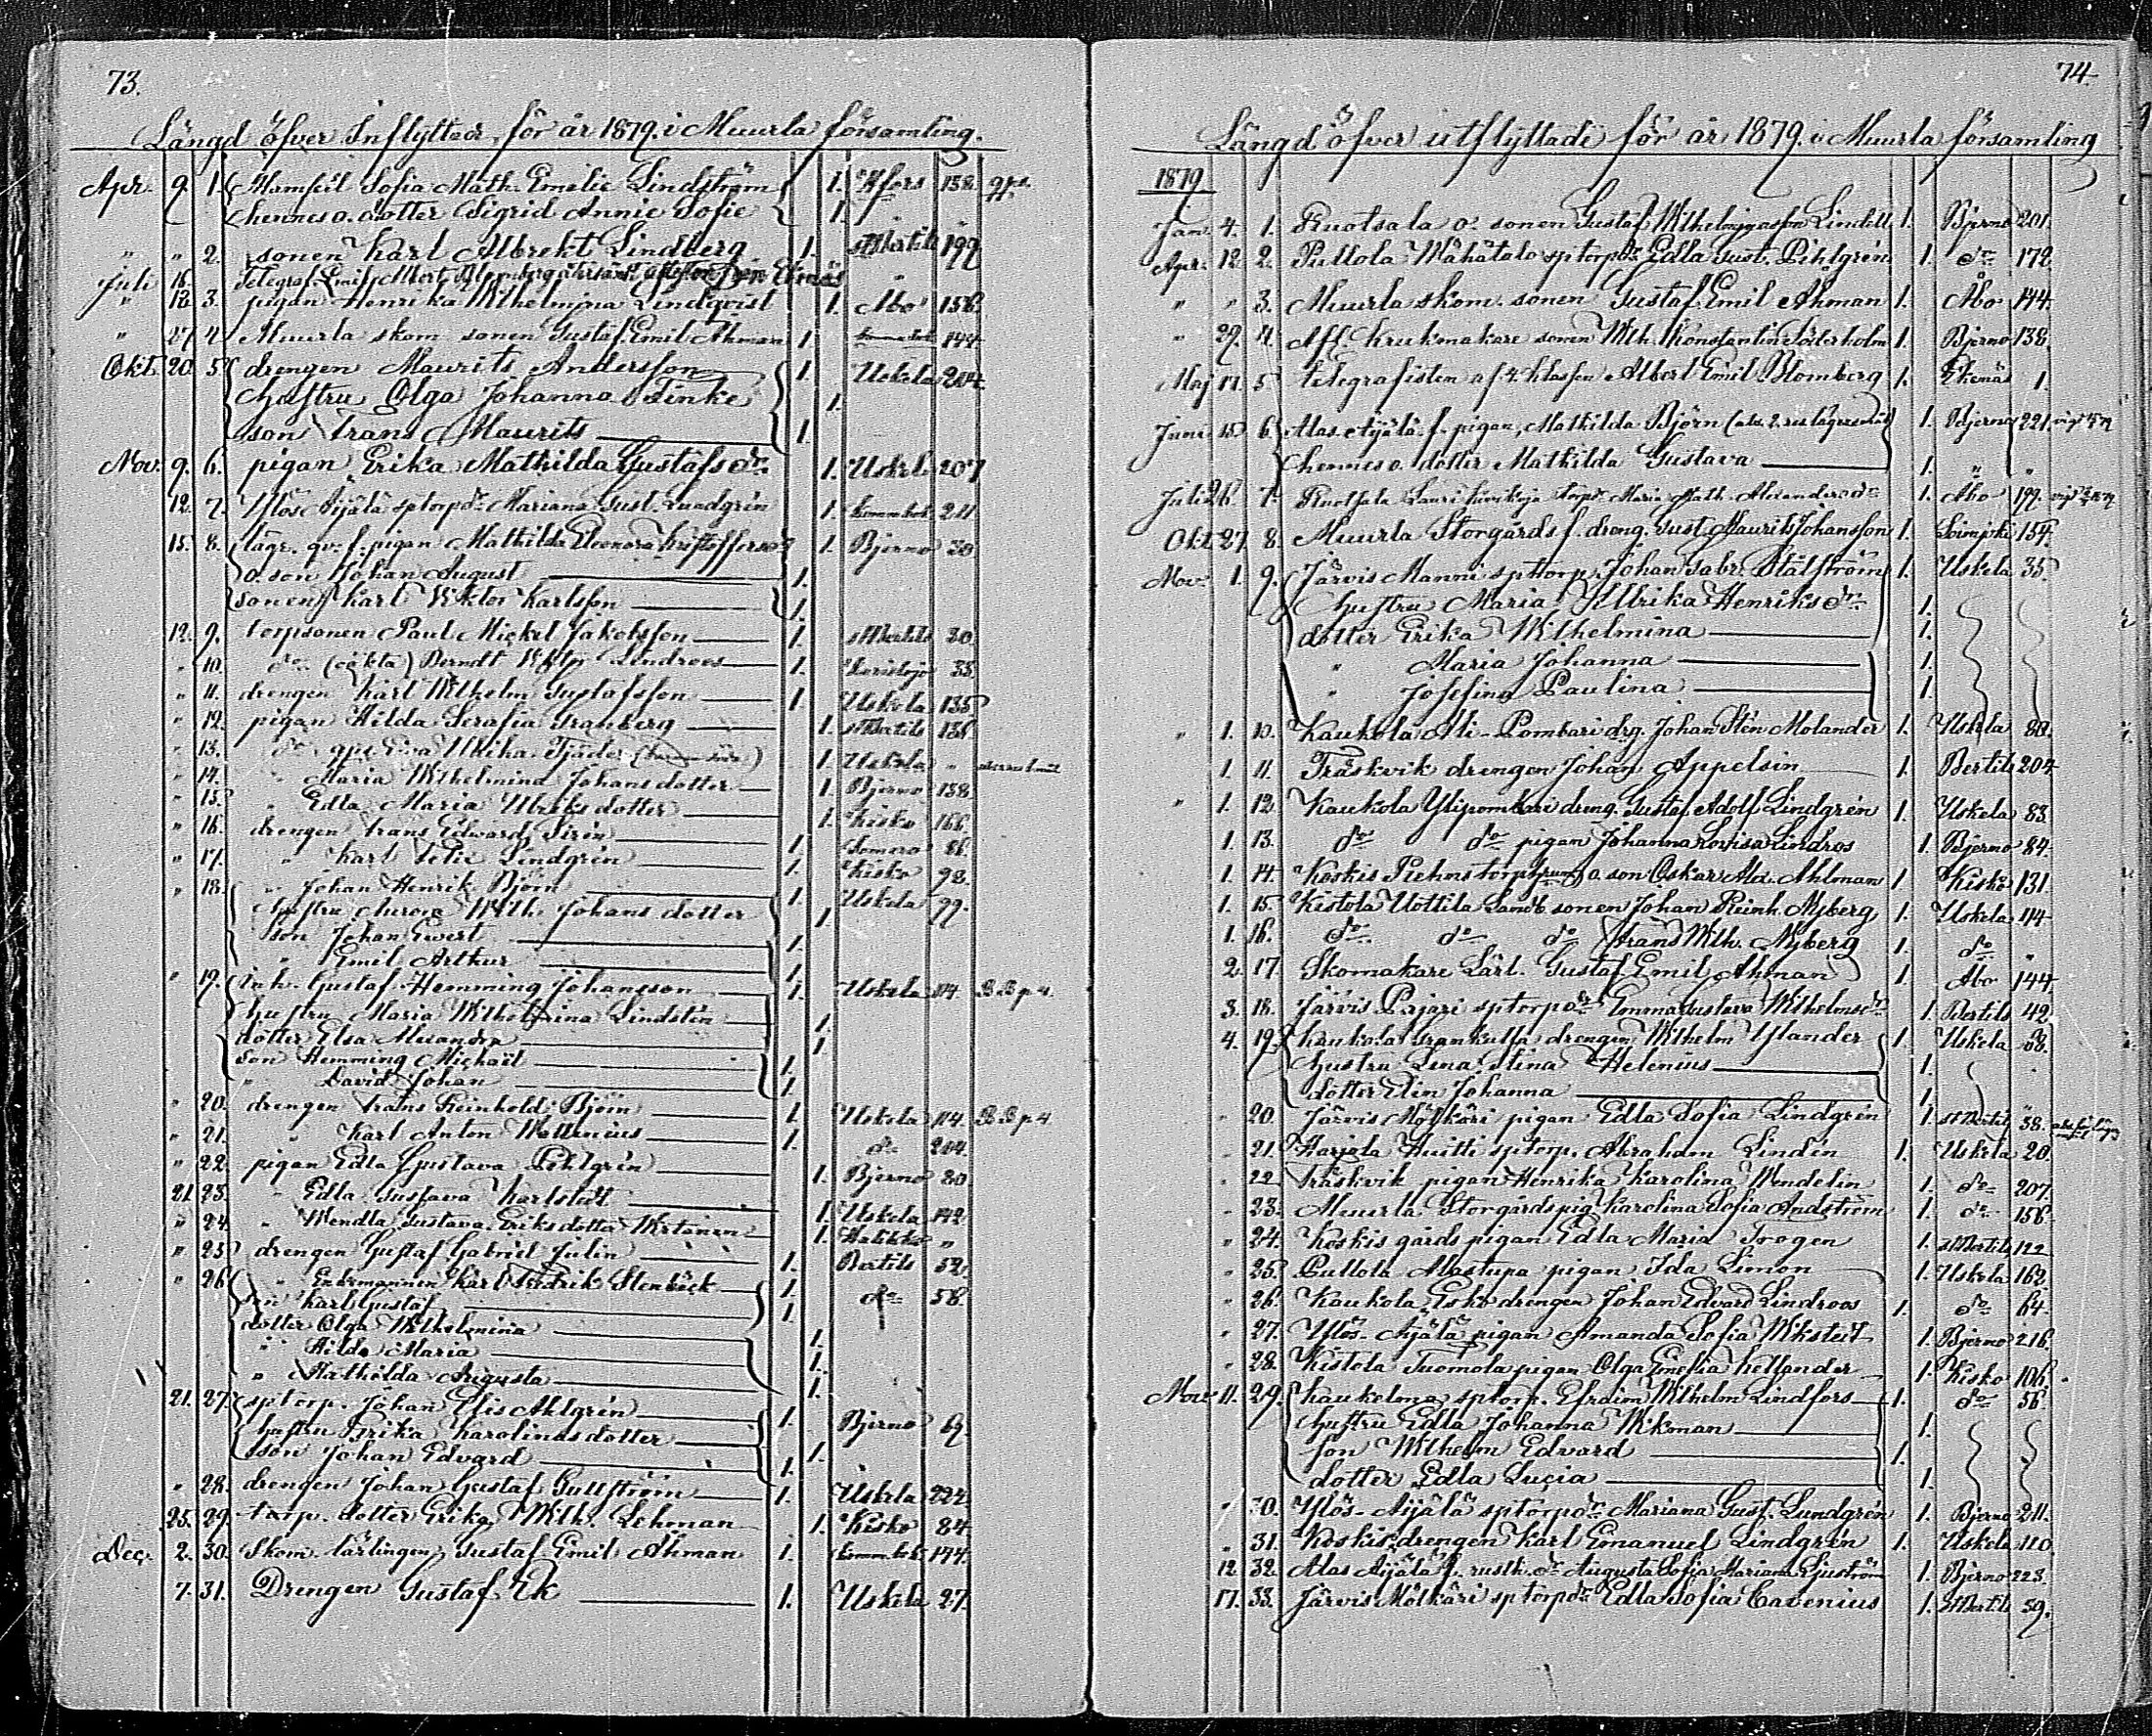 73.
Längd öfver Inflyttade för år 1879. i Muurla församling.
Apr. 9. 1. Mamsell Sofia Math. Emelie Lindström 1. Hfors 138. gpr.
hennes o. dotter Sigrid Annie Sofie 1. " "
" " 2. sonen Karl Albrekt Lindberg 1. StBertils 199
Juli 16. Telegraf. Emil Albert Blomberg Ekenäs "
" 12 3. pigan Henrika Wilhelmina Lindqvist 1. Åbo 156.
" 27 4 Muurla skom. sonen Gustaf Emil Åhman 1 144.
Okt. 20. 5. drengen Maurits Andersson 1. Uskela 204.
hustru Olga Johanna Finke 1.
son Frans Maurits 1.
Nov. 9. 6. pigan Erika Mathilda Gustafsdr 1. Uskela 207
12. 7. Ylös Äijälä sptorpdr Mariana Gust. Lundgrén 1. 211
15. 8. lägr. qv. f. pigan Mathilda Eleonora Kristoffersdr 1. Bjerno 30
o. son Johan August 1.
sonen Karl Viktor Karlsson 1.
12. 9. torpsonen Paul Mickel Jakobsson 1. StBertils 30.
" 10. do (oäkta) Berndt Lindroos 1. Karislojo 33.
" 11. drengen Karl Wilhelm Gustafsson 1. Uskela 135
" 12. pigan Hilda Serafia Granberg 1. StBertils 136.
" 13. do gpr Eva Ulrika Tjäder 1. Uskela "
" 14. " Maria Wilhelmina Johansdotter 1. Bjerno 138.
" 15. " Edla Maria Ulriksdotter 1. Kisko 166.
" 16. drengen Frans Edward Sirén 1. Somero 86.
" 17. " Karl Felix Lindgrén 1. Kisko 92.
" 18. " Johan Henrik Björn 1. Uskela 99.
hustru Aurora Wilh. Johansdotter 1.
son Johan Ewert 1.
" Emil Arthur 1.
" 19. inh. Gustaf Hemming Johansson 1. Uskela 114. B.B. p 4.
hustru Maria Wilhelmina Lindstén 1.
dotter Elsa Alexandra 1.
son Hemming Michaël 1.
" David Johan 1.
" 20. drengen Frans Reinhold Björn 1. Uskela 114. B.B. p 4.
" 21. " Karl Anton Wallenius 1. do 204.
" 22. pigan Edla Gustava Pihlgrén 1. Bjerno 80
21. 23. " Edla Gustava Karlstedt 1. Uskela 142.
" 24. " Wendla Gustava Eriksdotter Wirtanen 1. Halikko "
" 25. drengen Gustaf Gabriel Julin 1. Bertils 52.
" 26. " Enkemannen Karl Fredrik Stenbäck 1. do 58.
son Karl Gustaf 1.
dotter Olga Wilhelmina 1.
" Hilda Maria 1.
" Mathilda Augusta 1.
21. 27. sptorp. Johan Elis Ahlgrén 1. Bjerno 69.
hustru Erika Karolinasdotter 1.
son Johan Edvard 1.
" 28. drengen Johan Gustaf Gullström 1. Uskela 222.
25. 29. torp. dotter Erika Wilh. Lehman 1. Kisko 84.
Dec. 2. 30. Skom. lärlingen Gustaf Emil Åhman 1. 144.
7. 31. Drengen Gustaf Ek 1. Uskela 27.
74.
Längd öfver utflyttade för år 1879. i Muurla församling
1879
Jan. 4. 1. Ruotsala o. sonen Gustaf Wilhelminasson Lindell 1. Bjerno 201.
Apr. 12 2. Pullola Mähätalo sptorpdr Edla Gust. Pihlgrén 1. do 172.
" " 3. Muurla skom. sonen Gustaf Emil Åhman 1. Åbo 144.
" 29. 4. Afl. Krukmakare sonen Wilh. Konstantin Söderholm 1. Bjerno 138.
Maj 17. 5 telegrafisten af 4. klassen Albert Emil Blomberg 1. Ekenäs 1.
Juni 15. 6. Alas. Äijälä f. pigan, Mathilda Björn 1. Bjerno 221.
hennes o. dotter Mathilda Gustava 1. " "
Juli 26. 7. Ruotsala Lauri torpdr Maria Math. Alexandersdr 1. Åbo 199.
Okt 27 8. Muurla Storgårds f. dreng. Gust. Maurits Johansson 1. 154.
Nov. 1. 9. Järvis Manni sptorp. Johan Gabr. Stålström 1. Uskela 35.
hustru Maria Ullrika Henriksdr 1.
dotter Erika Wilhelmina 1.
" Maria Johanna 1.
" Josefina Paulina 1.
" 1. 10. Kaukola Ali-Pombari drg. Johan Stén Molander 1. Uskela 80.
1. 11. Träskvik drengen Johan Appelsin 1. Bertils 204
" 1. 12. Kaukola Ylipombari dreng. Gustaf Adolf Lindgrén 1. Uskela 83.
1. 13. do do pigan Johanna Lovisa Lindros 1. Bjerno 84.
1. 14. Koskis o. son Oskar Alex. Ahlman 1. Kisko 131.
1. 15. Kistola Uottila Landb. sonen Johan Reinh. Nyberg 1. Uskela 114
1. 16. do do do Frans Wilh. Nyberg 1. do "
2. 17. Skomakare Lärl. Gustaf Emil Åhman 1. Åbo 144
3. 18. Järvis Pajari sptorpdr Emma Gustava Wilhelmsdr 1. Bertils 42.
4. 19. Kaukola Grankulla drengen Wilhelm Ylander 1. Uskela 68.
hustru Lena Stina Helenius 1.
dotter Elin Johanna 1.
" 20. Järvis Mölkäri pigan Edla Sofia Lindgrén 1. StBertils 38.
" 21. Harjola Huitti sptorp. Abraham Lindén 1. Uskela 20.
" 22. Träskvik pigan Henrika Karolina Wendelin 1. do 207.
" 23. Muurla Storgårds pig. Karolina Sofia Andström 1. do 156.
" 24. Koskis gårds pigan Edla Maria Trogen 1. StBertils 122
" 25. Pullola Alastupa pigan Ida Simon 1. Uskela 162.
" 26. Kaukola Esko drengen Johan Edvard Lindroos 1. do 64.
" 27. Ylös-Äijälä pigan Amanda Sofia Wikstedt 1. Bjerno 216.
" 28. Kistola Tuomola pigan Olga Emelia Hellander 1. Kisko 106.
Nov. 11. 29. Kaukelma sptorp. Efraim Wilhelm Lindfors 1. do 56.
hustru Edla Johanna Wikman 1.
son Wilhelm Edvard 1.
dotter Edla Lucia 1.
" 30. Ylös-Äijälä sptorpdr Mariana Gust. Lundgrén 1. Bjerno 211.
" 31. Koskis drengen Karl Emanuel Lindgrén 1. Uskela 110.
12. 32. Alas Äijälä f. rusth. dr Augusta Sofia Mariana Ljuström 1. Bjerno 223.
17. 33. Järvis Mölkäri sptorpdr Edla Sofia Cavenius 1. StBertils 59.